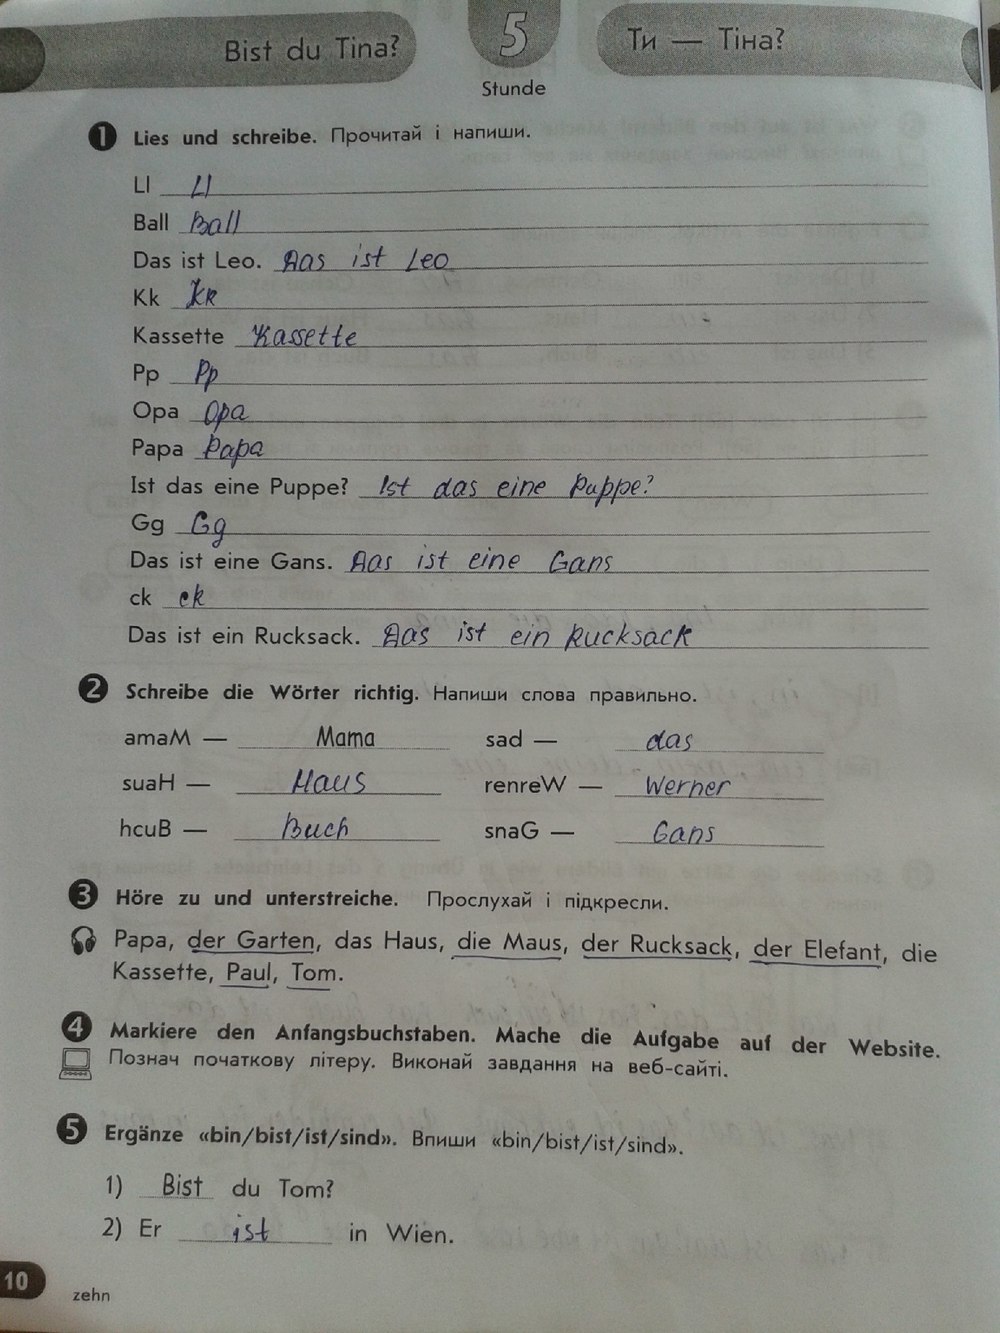 Bist du Tina?
5
Stunde
Ти — Тіна?
1 Lies und schreibe. Прочитай і напиши.
Ll Ll
Ball Ball
Das ist Leo. Das ist Leo
Kk Kk
Kassette Kassette
Pp Pp
Opa Opa
Papa Papa
Ist das eine Puppe? Ist das eine Puppe?
Gg Gg
Das ist eine Gans. Das ist eine Gans
ck ck
Das ist ein Rucksack. Das ist ein Rucksack
2 Schreibe die Wörter richtig. Напиши слова правильно.
amaM — Mama sad — das
suaH — Haus renreW — Werner
hcuB — Buch snaG — Gans
3 Höre zu und unterstreiche. Прослухай і підкресли.
Papa, der Garten, das Haus, die Maus, der Rucksack, der Elefant, die
Kassette, Paul, Tom.
4 Markiere den Anfangsbuchstaben. Mache die Aufgabe auf der Website.
Познач початкову літеру. Виконай завдання на веб-сайті.
5 Ergänze «bin/bist/ist/sind». Впиши «bin/bist/ist/sind».
1) Bist du Tom?
2) Er ist in Wien.
10
zehn